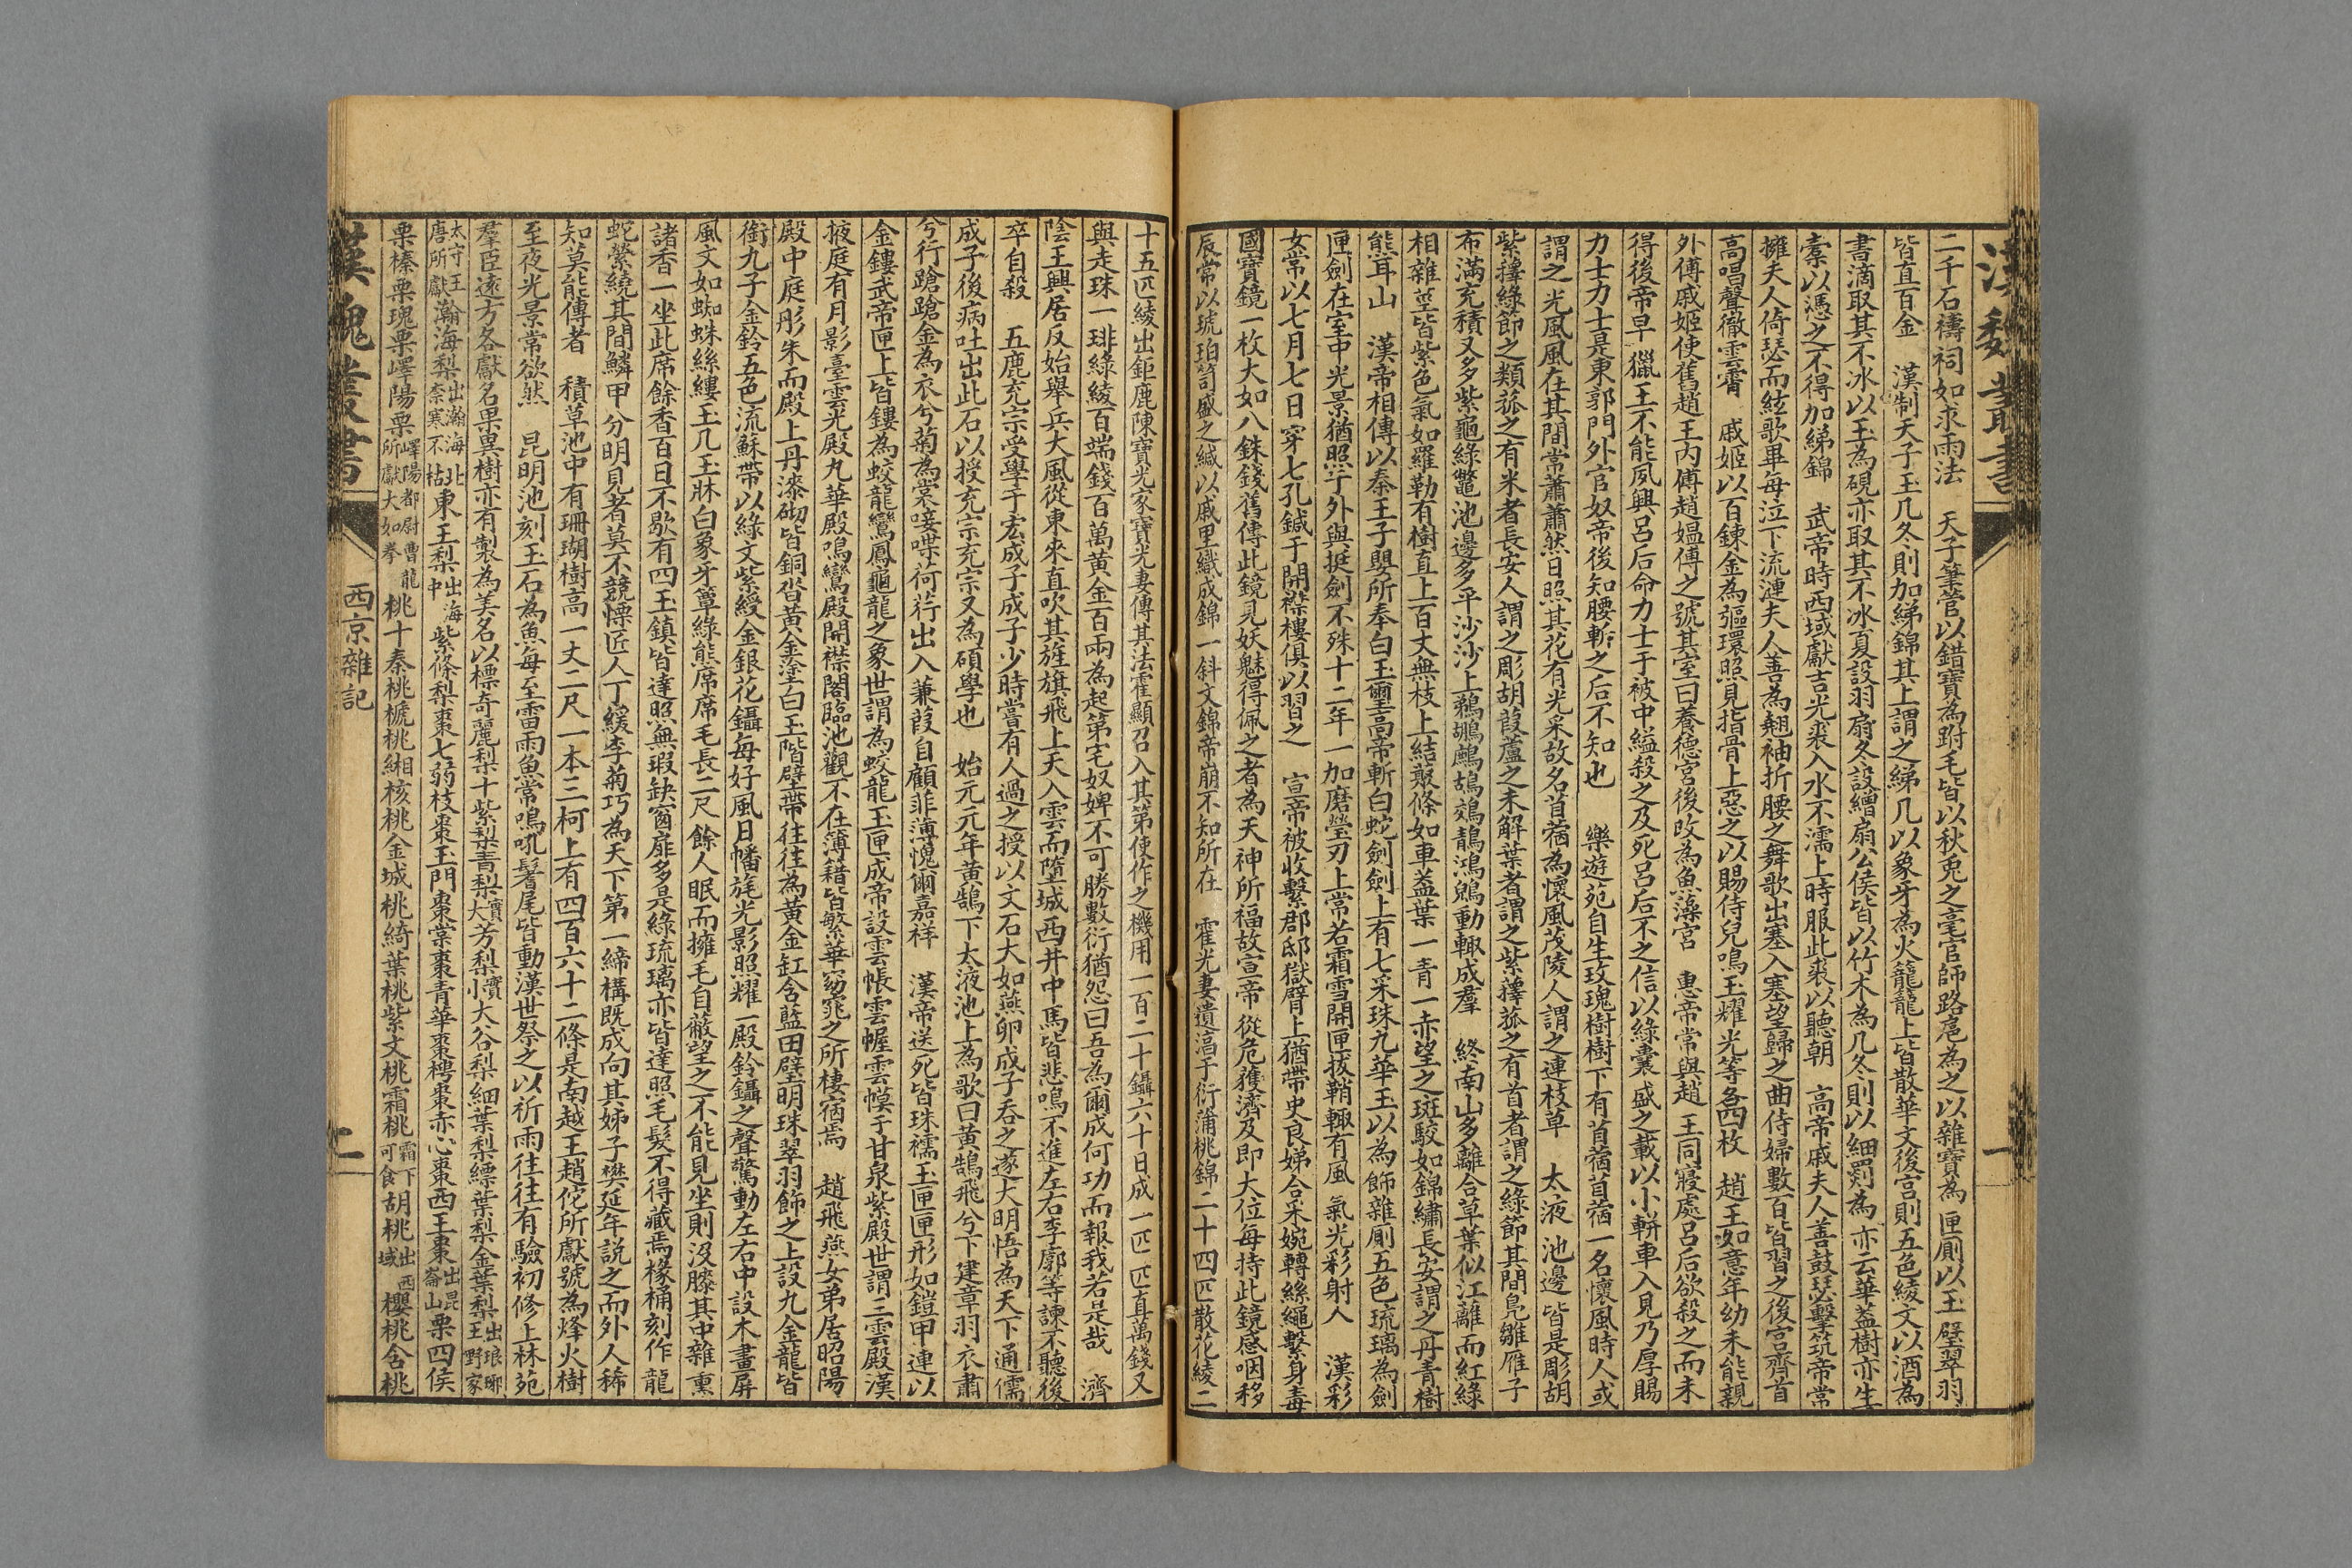 漢魏叢書
一
二千石禱祠如求雨法　天子筆管以錯寶為跗毛皆以秋兎之毫官師路扈為之以雜寶為匣厠以玉璧翠羽
皆直百金　漢制天子玉几冬則加綈錦其上謂之綈几以象牙為火籠籠上皆散華文後宮則五色綾文以酒為
書滴取其不冰以玉為硯亦取其不冰夏設羽扇冬設繒扇公侯皆以竹木為几冬則以細罽為亦云華蓋樹亦生
橐以憑之不得加綈錦　武帝時西域獻吉光裘入水不濡上時服此裘以聽朝　高帝戚夫人善鼓瑟擊筑帝常
擁夫人倚瑟而絃歌畢每泣下流漣夫人善為翹袖折腰之舞歌出塞入塞望歸之曲侍婦數百皆習之後宮齊首
高唱聲徹雲霄　戚姬以百鍊金為彄環照見指骨上惡之以賜侍兒鳴玉耀光等各四枚　趙王如意年幼未能親
外傅戚姬使舊趙王內傅趙媼傅之號其室曰養德宮後改為魚藻宮　惠帝常與趙王同寢處呂后欲殺之而未
得後帝早獵王不能夙興呂后命力士于被中縊殺之及死呂后不之信以綠囊盛之載以小軿車入見乃厚賜
力士力士是東郭門外官奴帝後知腰斬之后不知也　樂遊苑自生玫瑰樹樹下有苜蓿苜蓿一名懷風時人或
謂之光風風在其間常蕭蕭然日照其花有光采故名苜蓿為懷風茂陵人謂之連枝草　太液池邊皆是彫胡
紫蘀綠節之類菰之有米者長安人謂之彫胡葭蘆之未解葉者謂之紫蘀菰之有首者謂之綠節其間鳧雛雁子
布滿充積又多紫龜綠鼈池邊多平沙沙上鵜鶘鷓鴣鵁鶄鴻鶂動輒成羣　終南山多離合草葉似江蘺而紅綠
相雜莖皆紫色氣如羅勒有樹直上百丈無枝上結藂條如車蓋葉一青一赤望之斑駮如錦繡長安謂之丹青樹
熊耳山　漢帝相傳以秦王子嬰所奉白玉璽高帝斬白蛇劍劍上有七采珠九華玉以為飾雜厠五色琉璃為劍
匣劍在室中光景猶照于外與挺劍不殊十二年一加磨瑩刃上常若霜雪開匣拔鞘輒有風氣光彩射人　漢彩
女常以七月七日穿七孔鍼于開襟樓俱以習之　宣帝被收繫郡邸獄臂上猶帶史良娣合采婉轉絲繩繫身毒
國寶鏡一枚大如八銖錢舊傳此鏡見妖魅得佩之者為天神所福故宣帝從危獲濟及即大位每持此鏡感咽移
辰常以琥珀笥盛之緘以戚里織成錦一斜文錦帝崩不知所在　霍光妻遺淳于衍蒲桃錦二十四匹散花綾二
十五匹綾出鉅鹿陳寶光家寶光妻傳其法霍顯召入其第使作之機用一百二十鑷六十日成一匹匹直萬錢又
與走珠一琲綠綾百端錢百萬黃金百兩為起第宅奴婢不可勝數衍猶怨曰吾為爾成何功而報我若是哉　濟
陰王興居反始舉兵大風從東來直吹其旌旗飛上天入雲而墮城西井中馬皆悲鳴不進左右李廓等諫不聽後
卒自殺　五鹿充宗受學于宏成子成子少時嘗有人過之授以文石大如燕卵成子吞之遂大明悟為天下通儒
成子後病吐出此石以授充宗充宗又為碩學也　始元元年黃鵠下太液池上為歌曰黃鵠飛兮下建章羽衣肅
兮行蹌蹌金為衣兮菊為裳唼喋荷荇出入蒹葭自顧菲薄愧爾嘉祥　漢帝送死皆珠襦玉匣匣形如鎧甲連以
金鏤武帝匣上皆鏤為蛟龍鸞鳳龜龍之象世謂為蛟龍玉匣　成帝設雲帳雲幄雲幙于甘泉紫殿世謂三雲殿漢
掖庭有月影臺雲光殿九華殿鳴鸞殿開襟閣臨池觀不在簿籍皆繁華窈窕之所棲宿焉　趙飛燕女弟居昭陽
殿中庭彤朱而殿上丹漆砌皆銅沓黃金塗白玉階壁帶往往為黃金釭含藍田璧明珠翠羽飾之上設九金龍皆
銜九子金鈴五色流蘇帶以綠文紫綬金銀花鑷每好風日幡旄光影照耀一殿鈴鑷之聲驚動左右中設木畫屏
風文如蜘蛛絲縷玉几玉牀白象牙簟綠熊席席毛長二尺餘人眠而擁毛自蔽望之不能見坐則沒膝其中雜熏
諸香一坐此席餘香百日不歇有四玉鎮皆達照無瑕缺窗扉多是綠琉璃亦皆達照毛髮不得藏焉椽桷刻作龍
蛇縈繞其間鱗甲分明見者莫不兢慄匠人丁緩李菊巧為天下第一締構既成向其姊子樊延年說之而外人稀
知莫能傳者　積草池中有珊瑚樹高一丈二尺一本三柯上有四百六十二條是南越王趙佗所獻號為烽火樹
至夜光景常欲然　昆明池刻玉石為魚每至雷雨魚常鳴吼鬐尾皆動漢世祭之以祈雨往往有驗初修上林苑
羣臣遠方各獻名果異樹亦有製為美名以標奇麗梨十紫梨青梨實大芳梨實小大谷梨細葉梨縹葉梨金葉梨出琅琊王野家
太守王唐所獻瀚海梨出瀚海北奈寒不枯東王梨出海中紫條梨棗七弱枝棗玉門棗棠棗青華棗梬棗赤心棗西王棗出昆崙山栗四侯
栗榛栗瑰栗嶧陽栗嶧陽都尉曹龍所獻大如拳桃十秦桃榹桃緗核桃金城桃綺葉桃紫文桃霜桃霜下可食胡桃出西域櫻桃含桃
漢魏叢書
西京雜記
二